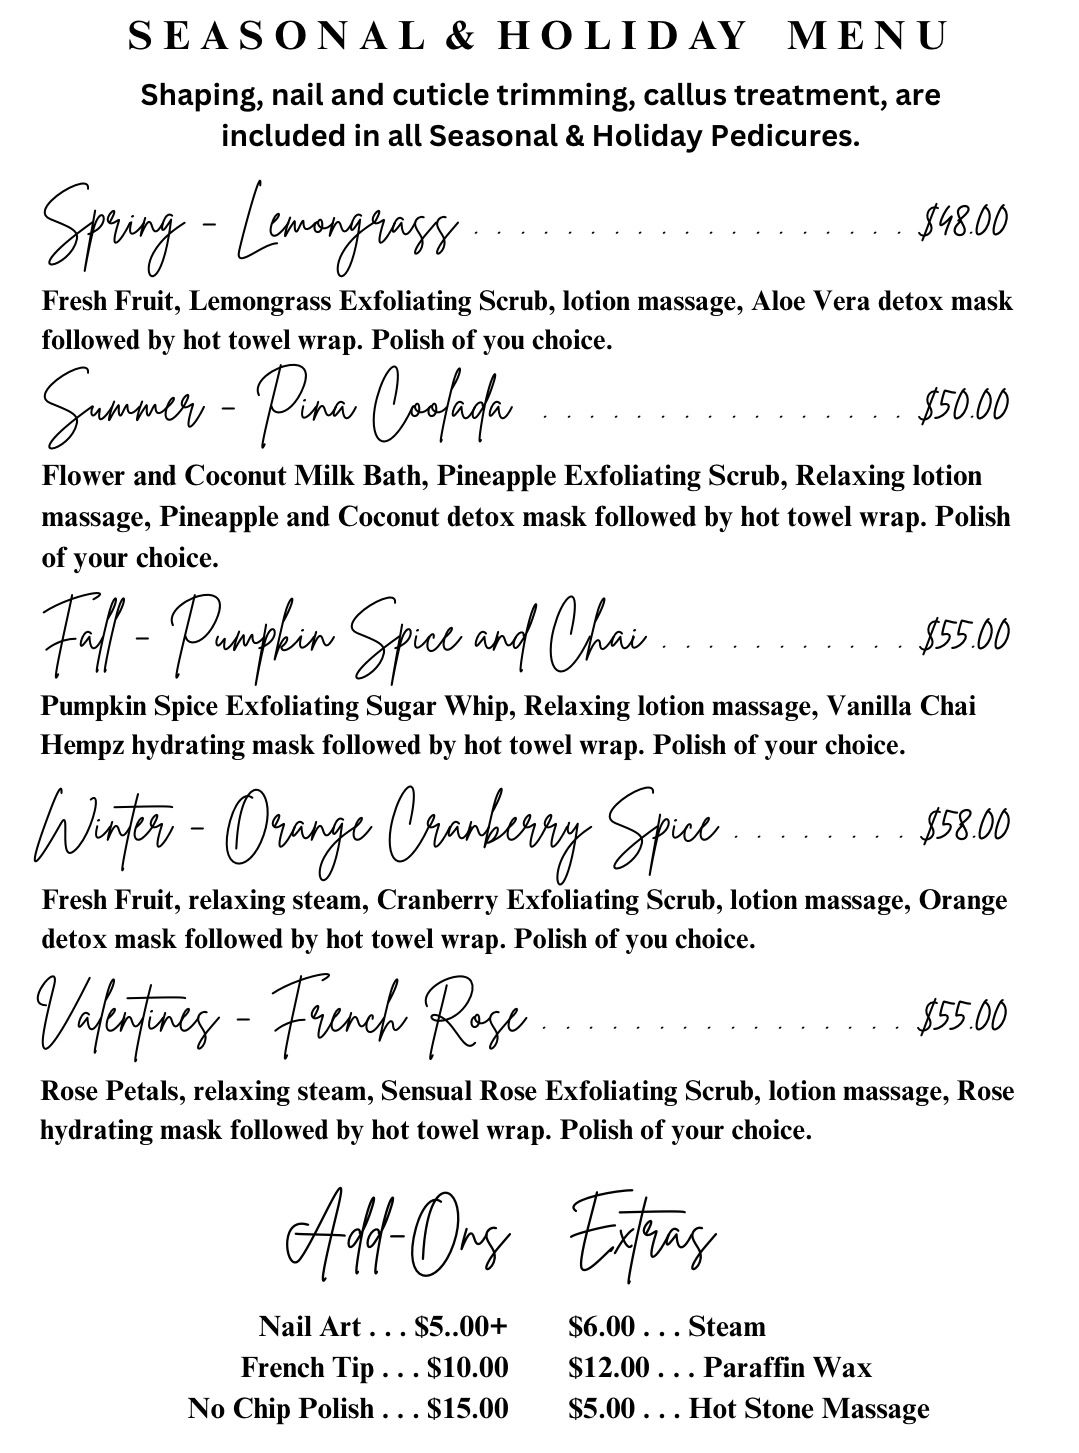 SEASONAL & HOLIDAY MENU
Shaping, nail and cuticle trimming, callus treatment, are
included in all Seasonal & Holiday Pedicures.
Spring - Lemongrass . . . . . . . . . . . . . . . . . . . $48.00
Fresh Fruit, Lemongrass Exfoliating Scrub, lotion massage, Aloe Vera detox mask
followed by hot towel wrap. Polish of you choice.
Summer - Pina Coolada . . . . . . . . . . . . . . . . $50.00
Flower and Coconut Milk Bath, Pineapple Exfoliating Scrub, Relaxing lotion
massage, Pineapple and Coconut detox mask followed by hot towel wrap. Polish
of your choice.
Fall - Pumpkin Spice and Chai . . . . . . . . . . . $55.00
Pumpkin Spice Exfoliating Sugar Whip, Relaxing lotion massage, Vanilla Chai
Hempz hydrating mask followed by hot towel wrap. Polish of your choice.
Winter - Orange Cranberry Spice . . . . . . . . $58.00
Fresh Fruit, relaxing steam, Cranberry Exfoliating Scrub, lotion massage, Orange
detox mask followed by hot towel wrap. Polish of you choice.
Valentines - French Rose . . . . . . . . . . . . . . . . $55.00
Rose Petals, relaxing steam, Sensual Rose Exfoliating Scrub, lotion massage, Rose
hydrating mask followed by hot towel wrap. Polish of your choice.
Add-Ons Extras
Nail Art . . . $5..00+ $6.00 . . . Steam
French Tip . . . $10.00 $12.00 . . . Paraffin Wax
No Chip Polish . . . $15.00 $5.00 . . . Hot Stone Massage